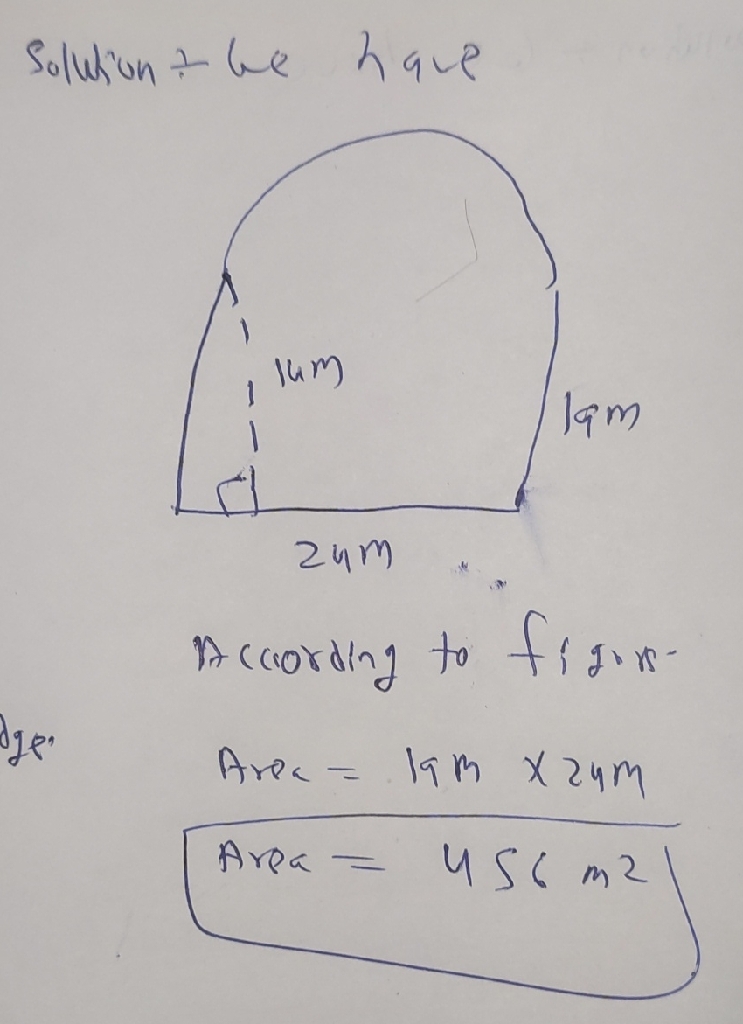 Solution :- we have
14m
19m
24m
According to figure-
dge.
Area = 19m x 24m
Area = 456 m2